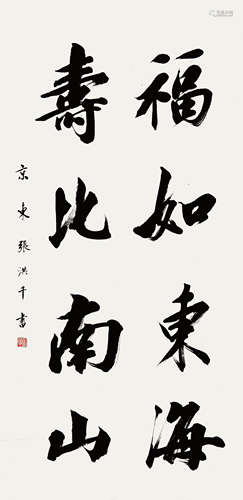 福如東海
壽比南山
京東張洪千書